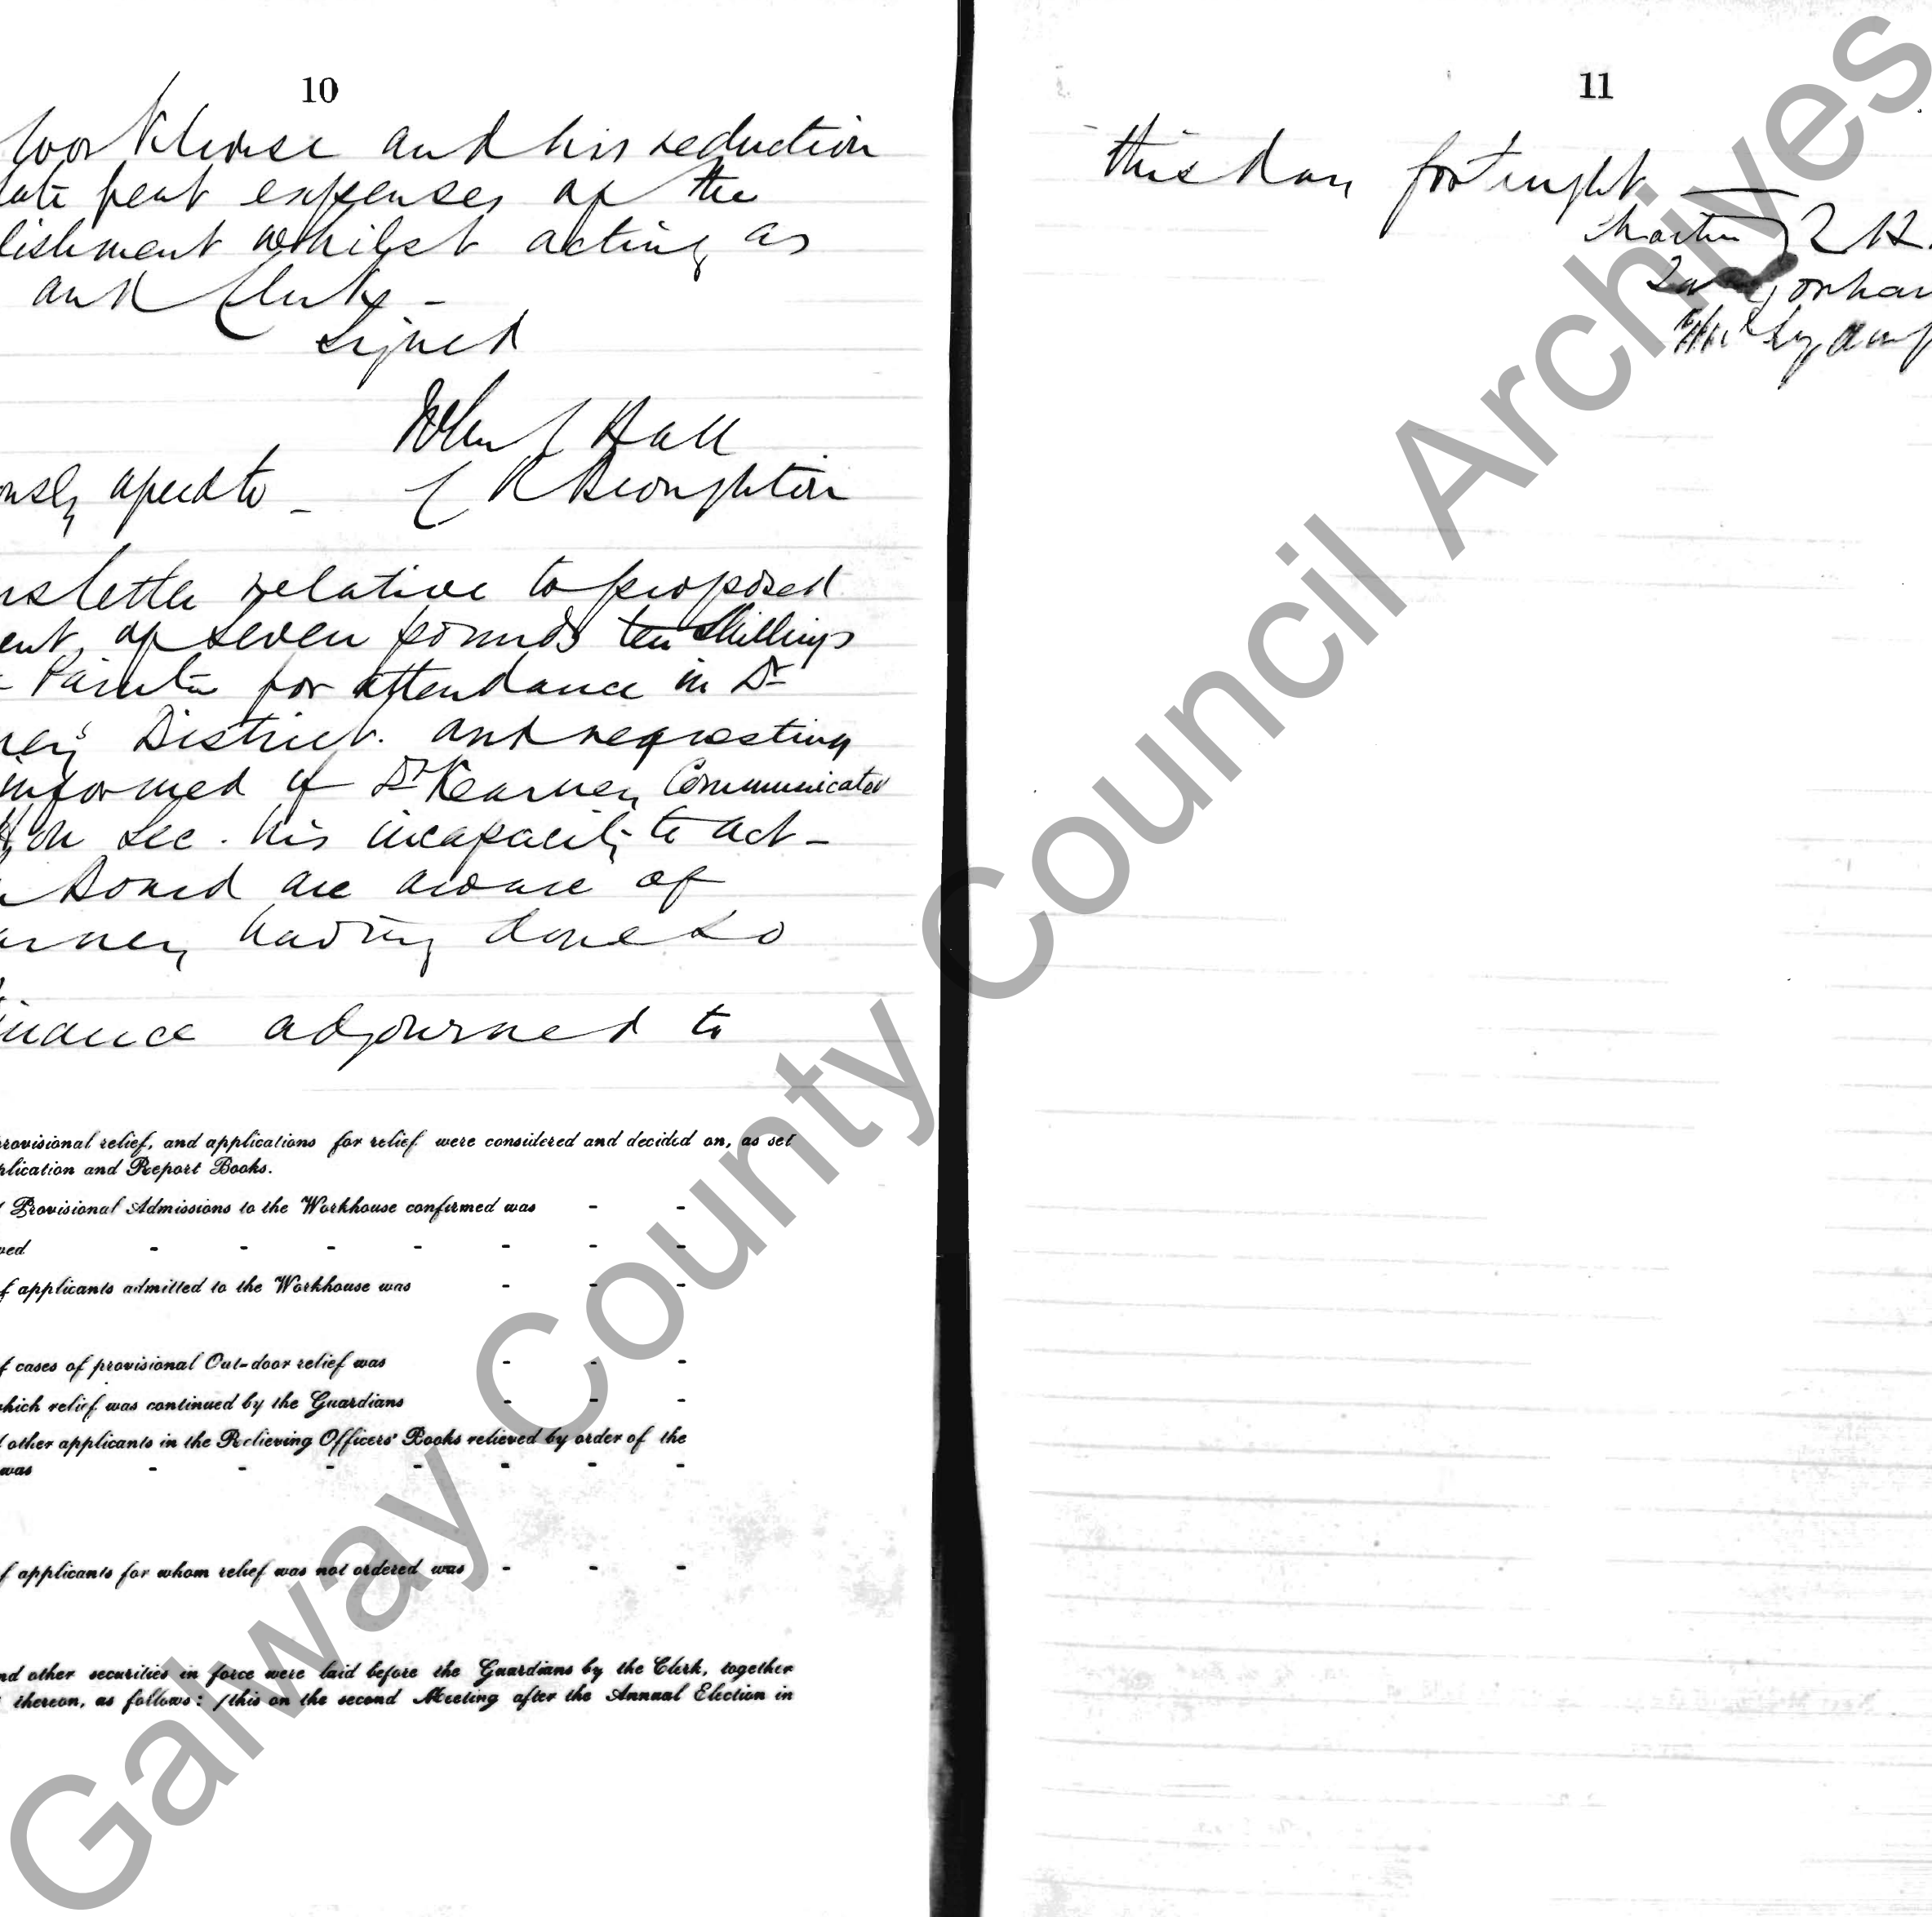 10
Workhouse and his reduction
late year expenses of the
lishment whilst acting as
and Clerk -
Signed
John J Hall
ously agreed to - J R Broughton
letter relative to proposed
ent of seven pounds ten Shillings
for attendance in Dr
District. and requesting
informed if Dr Kearney Communicated
on Sec. his incapacity to act -
Board are aware of
arney having done so
adjourned to
provisional relief, and applications for relief were considered and decided on, as set
plication and Report Books.
Provisional Admissions to the Workhouse confirmed was - -
ved - - - - - - -
f applicants admitted to the Workhouse was - - -
f cases of provisional Out-door relief was - - -
which relief was continued by the Guardians - - -
other applicants in the Relieving Officers' Books relieved by order of the
was - - - - - - -
f applicants for whom relief was not ordered was - - -
nd other securities in force were laid before the Guardians by the Clerk, together
thereon, as follows: (this on the second Meeting after the Annual Election in
11
this day fortnight
Martin
Galway County Council Archives